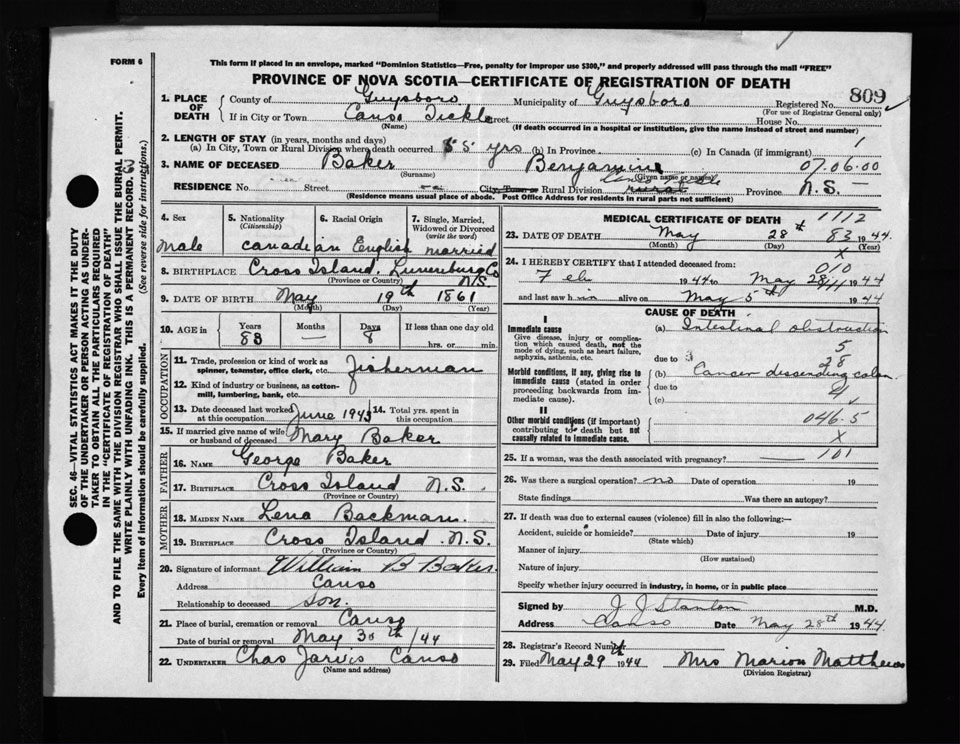 FORM 6
This form if placed in an envelope, marked "Dominion Statistics—Free, penalty for improper use $300," and properly addressed will pass through the mail "FREE"
PROVINCE OF NOVA SCOTIA—CERTIFICATE OF REGISTRATION OF DEATH
809
1. PLACE OF DEATH { County of Guysboro Municipality of Guysboro Registered No.
(For use of Registrar General only)
If in City or Town Canso Tickle Street House No.
(Name) (If death occurred in a hospital or institution, give the name instead of street and number)
2. LENGTH OF STAY (in years, months and days)
(a) In City, Town or Rural Division where death occurred 55 yrs (b) In Province (c) In Canada (if immigrant) 1
3. NAME OF DECEASED Baker Benjamin 07.06.00
(Surname) (Given name or names)
RESIDENCE No. Street City, Town or Rural Division rural Province N.S.
(Residence means usual place of abode. Post Office Address for residents in rural parts not sufficient)
4. Sex Male
5. Nationality (Citizenship) Canadian
6. Racial Origin English
7. Single, Married, Widowed or Divorced (write the word) married
8. BIRTHPLACE Cross Island, Lunenburg Co N.S.
(Province or Country)
9. DATE OF BIRTH May 19th 1861
(Month) (Day) (Year)
10. AGE in Years Months Days If less than one day old
83 — 8 hrs. or min.
OCCUPATION
11. Trade, profession or kind of work as spinner, teamster, office clerk, etc. Fisherman
12. Kind of industry or business, as cotton-mill, lumbering, bank, etc.
13. Date deceased last worked at this occupation June 1943 14. Total yrs. spent in this occupation
15. If married give name of wife or husband of deceased Mary Baker
FATHER
16. NAME George Baker
17. BIRTHPLACE Cross Island N.S.
(Province or Country)
MOTHER
18. MAIDEN NAME Lena Backman
19. BIRTHPLACE Cross Island N.S.
(Province or Country)
20. Signature of informant William B Baker
Address Canso
Relationship to deceased son.
21. Place of burial, cremation or removal Canso
Date of burial or removal May 30th/44
22. UNDERTAKER Chas Jarvis Canso
(Name and address)
MEDICAL CERTIFICATE OF DEATH
1112
23. DATE OF DEATH May 28th 83 1944
(Month) (Day) (Year)
X
24. I HEREBY CERTIFY that I attended deceased from: 010
Feb 1944 to May 28 1944
and last saw him alive on May 5th 1944
CAUSE OF DEATH
I
Immediate cause
Give disease, injury or complication which caused death, not the mode of dying, such as heart failure, asphyxia, asthenia, etc.
(a) Intestinal obstruction
5
due to 28
Morbid conditions, if any, giving rise to immediate cause (stated in order proceeding backwards from immediate cause).
(b) Cancer dessending colon
due to 4
(c)
II
Other morbid conditions (if important) contributing to death but not causally related to immediate cause.
046.5
X
25. If a woman, was the death associated with pregnancy? 101
26. Was there a surgical operation? no Date of operation 19
State findings Was there an autopsy?
27. If death was due to external causes (violence) fill in also the following:—
Accident, suicide or homicide? Date of injury 19
(State which)
Manner of injury
(How sustained)
Nature of injury
Specify whether injury occurred in industry, in home, or in public place
Signed by J J Stanton M.D.
Address Canso Date May 28th 1944
28. Registrar's Record Number
29. Filed May 29th 1944 Mrs Marion Matthews
(Division Registrar)
SEC. 46—VITAL STATISTICS ACT MAKES IT THE DUTY OF THE UNDERTAKER OR PERSON ACTING AS UNDERTAKER TO OBTAIN ALL THE PARTICULARS REQUIRED IN THE "CERTIFICATE OF REGISTRATION OF DEATH" AND TO FILE THE SAME WITH THE DIVISION REGISTRAR WHO SHALL ISSUE THE BURIAL PERMIT.
WRITE PLAINLY WITH UNFADING INK. THIS IS A PERMANENT RECORD.
Every item of information should be carefully supplied. (See reverse side for instructions.)